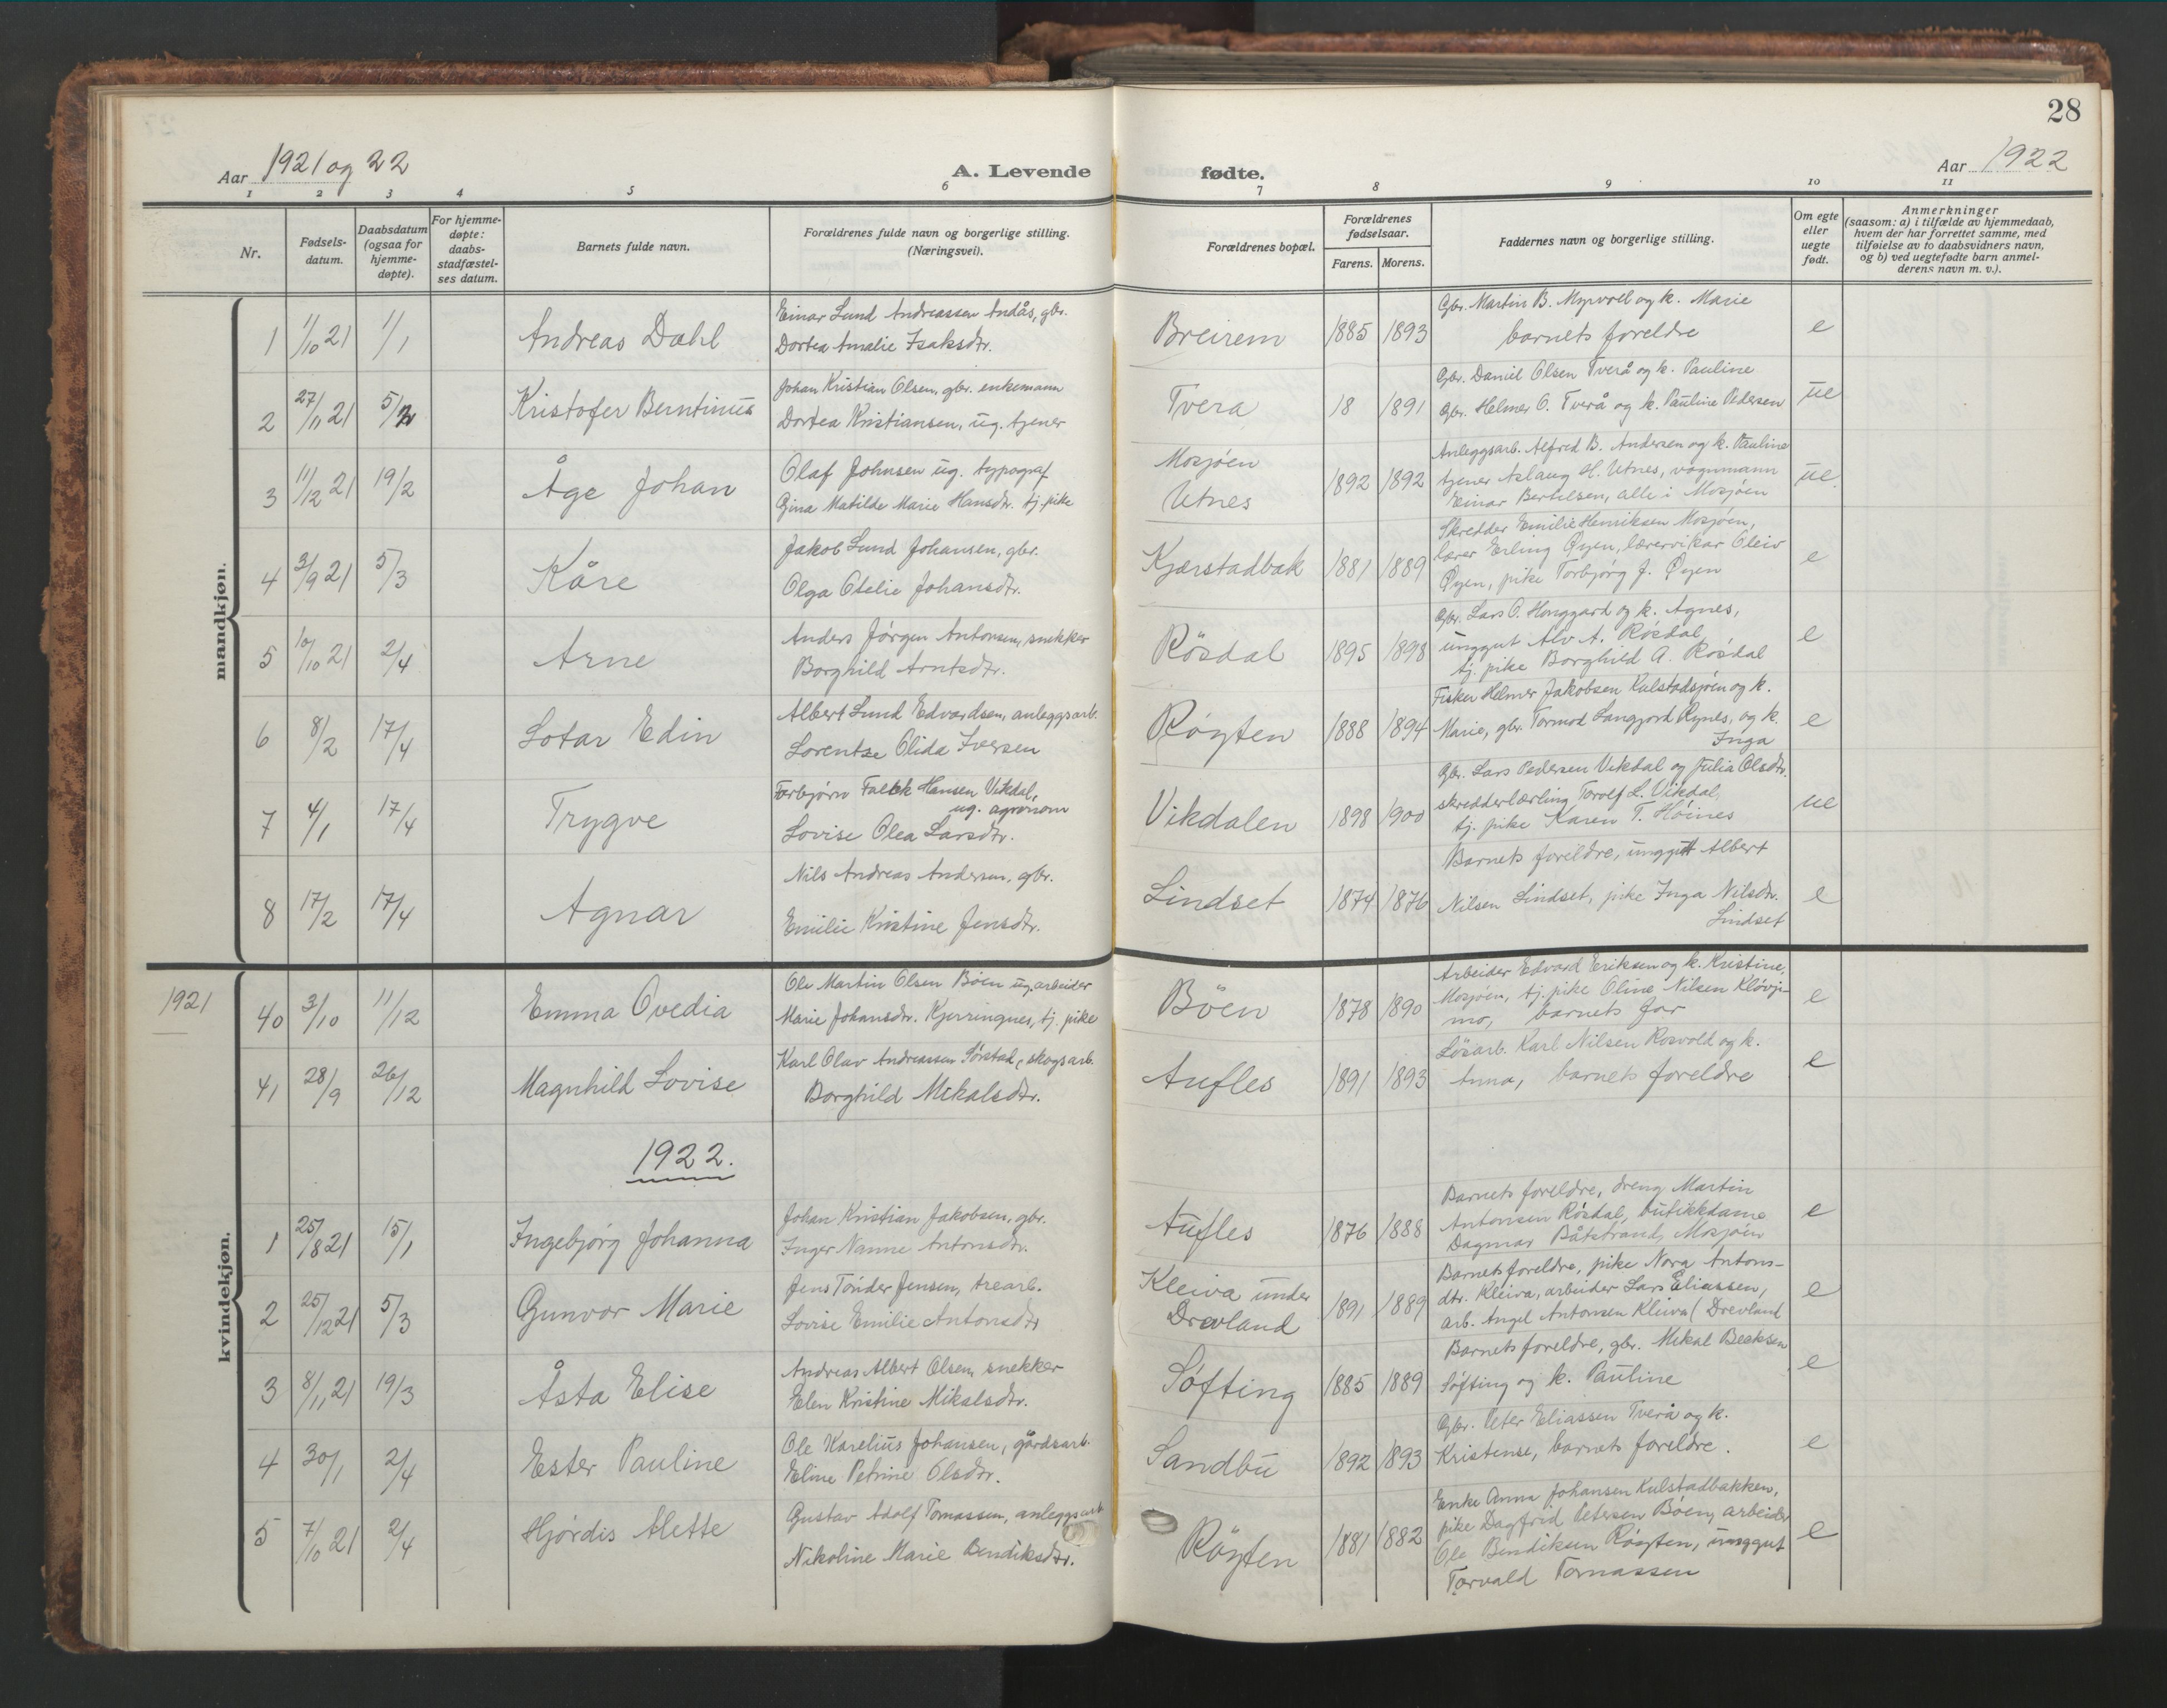 28
Aar 1921 og 22
A. Levende fødte.
Aar 1922
1 2 3 4 5 6 7 8 9 10 11
Nr.
Fødsels-datum.
Daabsdatum (ogsaa for hjemme-døpte).
For hjemme-døpte: daabs-stadfæstel-ses datum.
Barnets fulde navn.
Forældrenes fulde navn og borgerlige stilling. (Næringsvei).
Forældrenes bopæl.
Forældrenes fødselsaar.
Farens. Morens.
Faddernes navn og borgerlige stilling.
Om egte eller uegte født.
Anmerkninger (saasom: a) i tilfælde av hjemmedaab, hvem der har forrettet samme, med tilføielse av to daabsvidners navn, og b) ved uegtefødte barn anmel-derens navn m. v.).
mandkjøn.
1 11/10 21 1/1 Andreas Dahl
Einar Lund Andreassen Andås, gbr.
Dortea Amalie Isaksdtr.
Breirem 1885 1893
Gbr. Martin B. Myrvrel og k. Marie
barnets foreldre
e
2 27/11 21 5/2 Kristofer Berntinus
Johan Kristian Olsen, gbr. enkemann
Dortea Kristiansen, ug. tjener
Tvera 18 1891
Gbr. Daniel Olsen Tverå og k. Pauline
Gbr. Helmer O. Tverå og k. Pauline Pedersen
ue
3 11/12 21 19/2 Åge Johan
Olaf Johnsen ug. typograf
Gina Matilde Marie Hansdtr. tj. pike
Mosjöen
Utnes
1892 1892
Anleggsarb. Alfred B. Andersen og k. Pauline
tjener Aslaug H. Utnes, vognmann
Einar Bertelsen, alle i Mosjöen
ue.
4 3/9 21 5/3 Kåre
Jakob Lund Johansen, gbr.
Olga Otelie Johansdtr.
Kjærstadbak 1881 1889
Skredder Emilie Henriksen Mosjöen,
lærer Erling Øyen, lærervikar Oleiv
Øyen, pike Torbjørg J. Øyen
e
5 10/10 21 2/4 Arne
Anders Jörgen Antonsen, snekker
Borghild Arntsdtr.
Rösdal 1895 1898
Gbr. Lars O. Honggard og k. Agnes,
unggut Alv A. Rösdal,
tj. pike Borghild A. Rösdal
e
6 8/2 17/4 Lotar Edin
Albert Lund Edvardsen, anleggsarb.
Lorentze Olida Iversen
Röyten 1888 1894
Fisker Helmer Jakobsen Kulstadsjöen og k.
Marie, gbr. Tormod Langjord Rynes, og k.
Inga
e
7 4/1 17/4 Trygve
Torbjörn Falck Hansen Vikdal,
ug. agronom
Lovise Olea Larsdtr.
Vikdalen 1898 1900
Gbr. Lars Pedersen Vikdal og Julia Olsdtr.
skredderlærling Torolf L. Vikdal,
tj. pike Karen T. Höines
ue
8 17/2 17/4 Agnar
Nils Andreas Andersen, gbr.
Emilie Kristine Jensdtr.
Lindset 1874 1876
Barnets foreldre, unggutt Albert
Nilsen Lindset, pike Inga Nilsdtr.
Lindset
e
kvindekjøn.
1921
40 3/10 11/12 Emma Ovedia
Ole Martin Olsen Böen ug. arbeider
Marie Johansdtr. Kjerringnes, tj. pike
Böen 1878 1890
Arbeider Edvard Eriksen og k. Kristine,
Mosjöen, tj. pike Oline Nilsen Klovji-
mo, barnets far
e
41 28/9 26/12 Magnhild Lovise
Karl Olav Andreassen Sörstad, skogsarb.
Borghild Mikalsdtr.
Aufles 1891 1893
Lösarb. Karl Nilsen Rosvold og k.
Anna, barnets foreldre
e
1922.
1 25/8 21 15/1 Ingebjörg Johanna
Johan Kristian Jakobsen, gbr.
Inger Nanne Antonsdtr.
Aufles 1876 1888
Barnets foreldre, dreng Martin
Antonsen Rösdal, butikkdame
Dagmar Båtstrand, Mosjöen
e
2 25/12 21 5/3 Gunvor Marie
Jens Tönder Jensen, trearb.
Lovise Emilie Antonsdtr
Kleiva under
Drevland
1891 1889
Barnets foreldre, pike Nora Antons-
dtr. Kleiva, arbeider Lars Eliassen,
arb. Angel Antonsen Kleiva (Drevland
e
3 8/11 21 19/3 Åsta Elise
Andreas Albert Olsen, snekker
Elen Kristine Mikalsdtr.
Söfting 1885 1889
Barnets foreldre, gbr. Mikal Beaksen
Söfting og k. Pauline
e
4 30/1 2/4 Ester Pauline
Ole Karelius Johansen, gårdsarb.
Eline Petrine Olsdtr.
Sandbu 1892 1893
Gbr. Peter Eliassen Tverå og k.
Kristense, barnets foreldre.
e
5 7/10 21 2/4 Hjördis Alette
Gustav Adolf Tomassen, anleggsarb
Nikoline Marie Bendiksdtr.
Röyten 1881 1882
Enke Anna Johansen Kulstadbakken,
pike Dagfrid Petersen Böen, arbeider
Ole Bendiksen Röyten, unggut
Torvald Tomassen
e